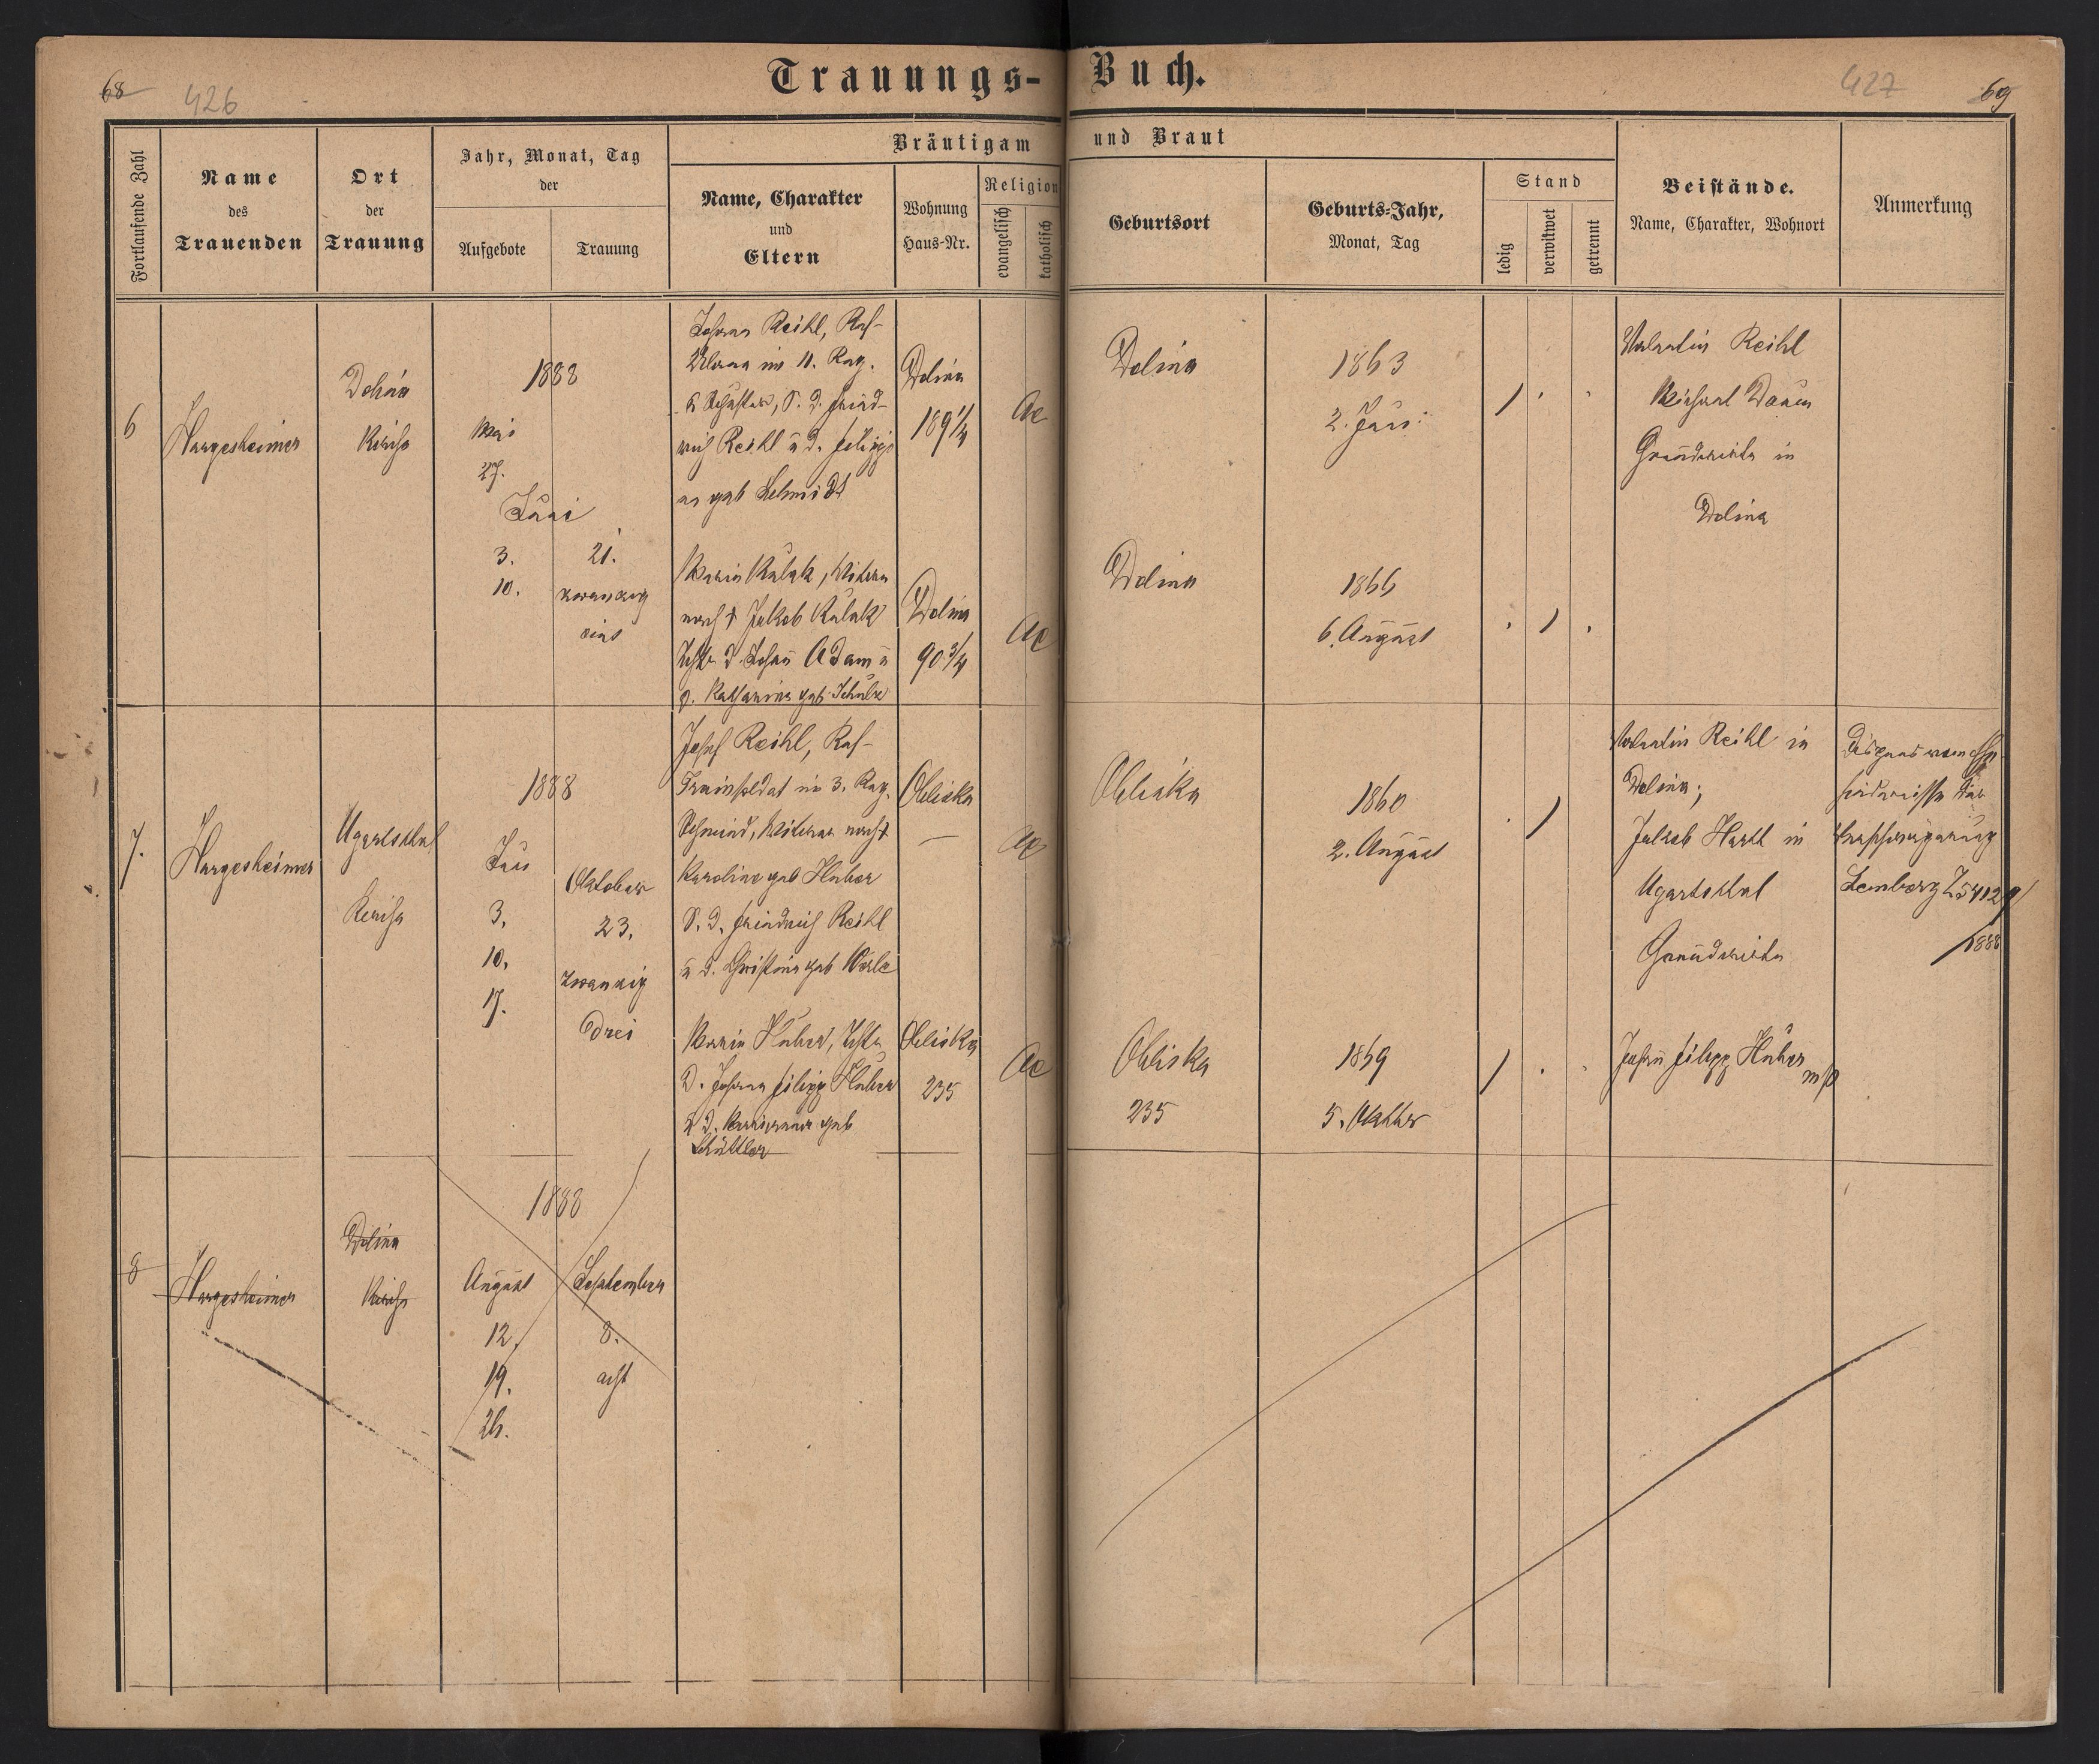 Trauungs-Buch.
68
426
427
69
Fortlaufende Zahl
Name
des
Trauenden
Ort
der
Trauung
Jahr, Monat, Tag
der
Aufgebote
Trauung
Bräutigam und Braut
Name, Charakter
und
Eltern
Wohnung
Haus-Nr.
Religion
evangelisch
katholisch
Geburtsort
Geburts-Jahr,
Monat, Tag
Stand
ledig
verwitwet
getrennt
Beistände.
Name, Charakter, Wohnort
Anmerkung
6
Hargesheimer
Dolina
Kirche
1888
Mai
27.
Juni
3.
10.
21.
zwanzig
eins
Johann Reihl, Res-
im 11. Reg.
u Schuster, S. d. Fried-
rich Reihl u d. Filippi-
ne geb Schmidt
Dolina
189 1/4
AC
Dolina
1863
2. Juni
/
Valentin Reihl
Michael Daum
Grundwirte in
Dolina
Maria Kulak, Witwe
nach † Jakob Kulak
Tcht. d. Johann Adam u
d. Katharina geb. Schulz
Dolina
90 3/4
AC
Dolina
1866
6. August
/
7.
Hargesheimer
Ugartsthal
Kirche
1888
Juni
3.
10.
17.
Oktober
23.
zwanzig
drei
Josef Reihl, Res-
Trainsoldat im 3. Reg.
Schmied, Witwer nach †
Karoline geb Huber
S. d. Friedrich Reihl
u d. Christina geb
Obliska
—
AC
Obliska
1860
2. August
/
Valentin Reihl in
Dolina;
Jakob Hartl in
Ugartsthal
Grundwirte
Dispens vom Ehe-
hindernisse der
Verschwägerung
Lemberg Z 54129/
/1888
Maria Huber, Tcht.
d. Johann Filipp Huber
u d. geb
Schüttler
Obliska
235
AC
Obliska
235
1869
5. Oktober
/
Johann Filipp Huber
m/p
8
Hargesheimer
Dolina
Kirche
1888
August
12.
19.
26.
September
8.
acht